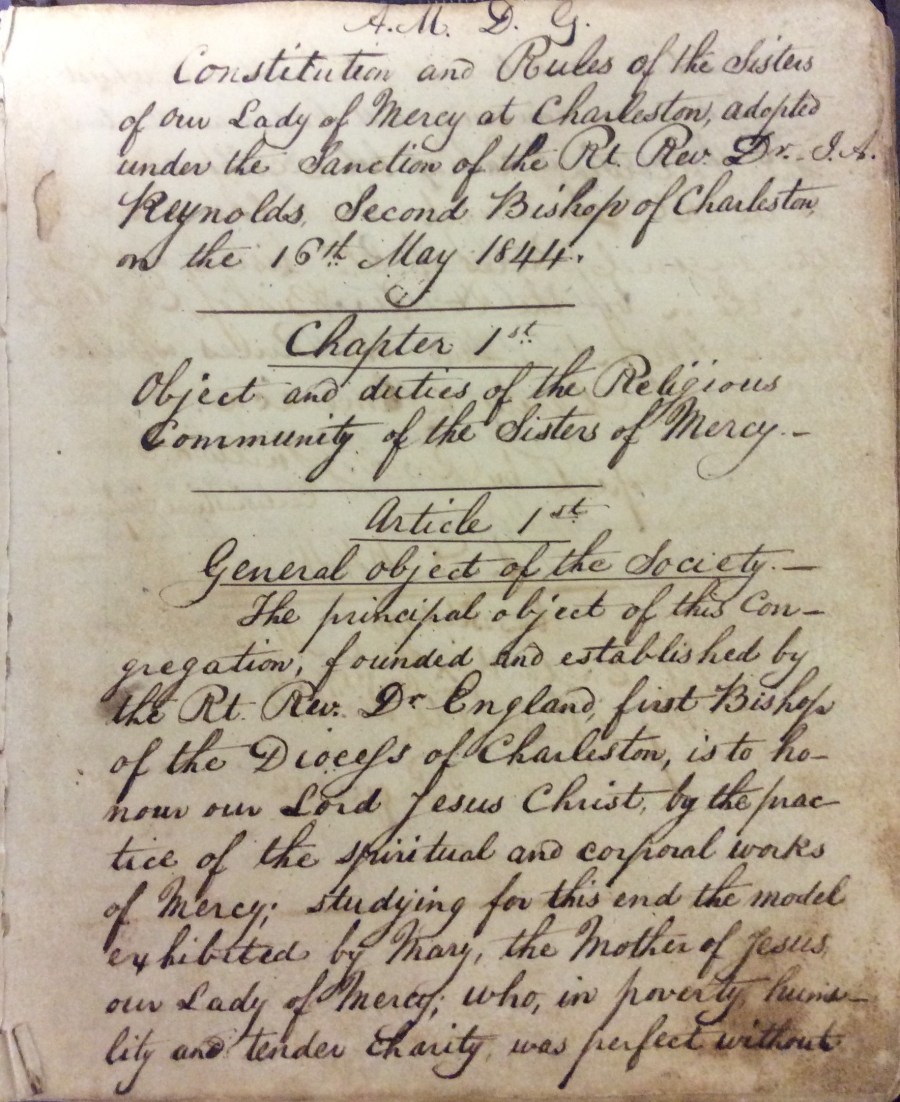 A. M. D. G.
Constitution and Rules of the Sisters
of our Lady of Mercy at Charleston, adopted
under the Sanction of the Rt. Rev. Dr. I. A.
Reynolds, Second Bishop of Charleston,
on the 16th May 1844.
Chapter 1st
Object and duties of the Religious
Community of the Sisters of Mercy.—
Article 1st
General object of the Society.—
The principal object of this Con-
gregation, founded and established by
the Rt. Rev. Dr England, first Bishop
of the Diocess of Charleston, is to ho-
nour our Lord Jesus Christ, by the prac-
tice of the spiritual and corporal works
of Mercy; studying for this end the model
exhibited by Mary, the Mother of Jesus,
our Lady of Mercy; who, in poverty, humi-
lity and tender charity, was perfect without